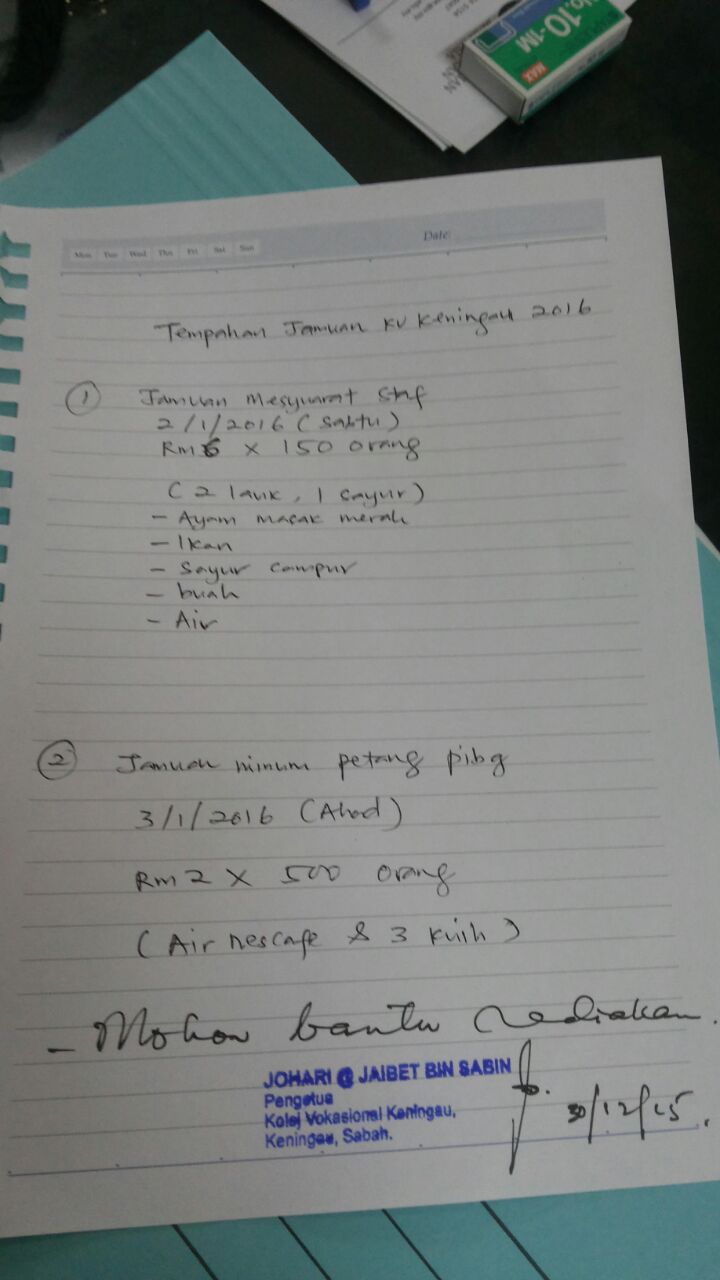 No.10-1M
MAX
Mon Tue Wed Thu Fri Sat Sun
Date:
Tempahan Jamuan KV Keningau 2016
1 Jamuan Mesyuarat Staf
2/1/2016 (Sabtu)
RM6 x 150 orang
(2 lauk, 1 sayur)
- Ayam masak merah
- Ikan
- Sayur campur
- buah
- Air
2 Jamuan minum petang pibg
3/1/2016 (Ahad)
RM2 x 500 orang
(Air nescafe & 3 kuih)
- Mohon bantu sediakan.
JOHARI @ JAIBET BIN SABIN
Pengetua
Kolej Vokasional Keningau,
Keningau, Sabah.
30/12/15.